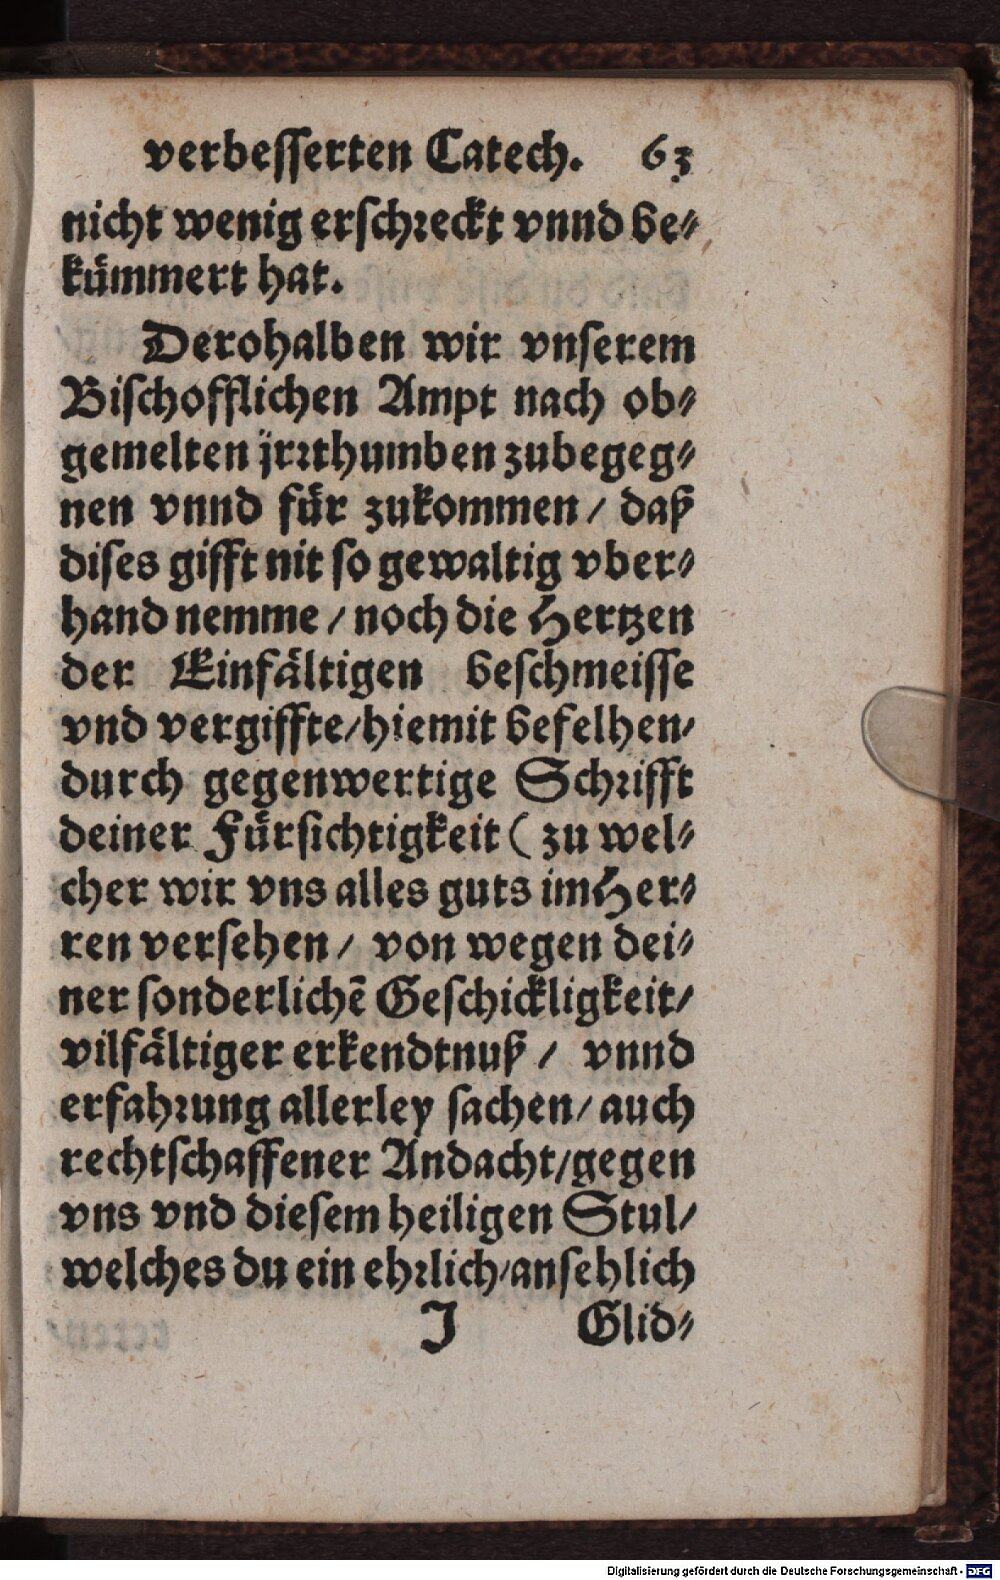 verbesserten Catech. 63
nicht wenig erschreckt vnnd be⸗
kümmert hat.
Derohalben wir vnserem
Bischofflichen Ampt nach ob⸗
gemelten jrrthumben zubegeg⸗
nen vnnd für zukommen / daß
dises gifft nit so gewaltig vber⸗
hand nemme / noch die Hertzen
der Einfältigen beschmeisse
vnd vergiffte / hiemit befelhen /
durch gegenwertige Schrifft
deiner Fürsichtigkeit ( zu wel⸗
cher wir vns alles guts im Her⸗
ren versehen / von wegen dei⸗
ner sonderlichē Geschickligkeit /
vilfältiger erkendtnuß / vnnd
erfahrung allerley sachen / auch
rechtschaffener Andacht / gegen
vns vnd diesem heiligen Stul /
welches du ein ehrlich / ansehlich
J Glid⸗
Digitalisierung gefördert durch die Deutsche Forschungsgemeinschaft - DFG